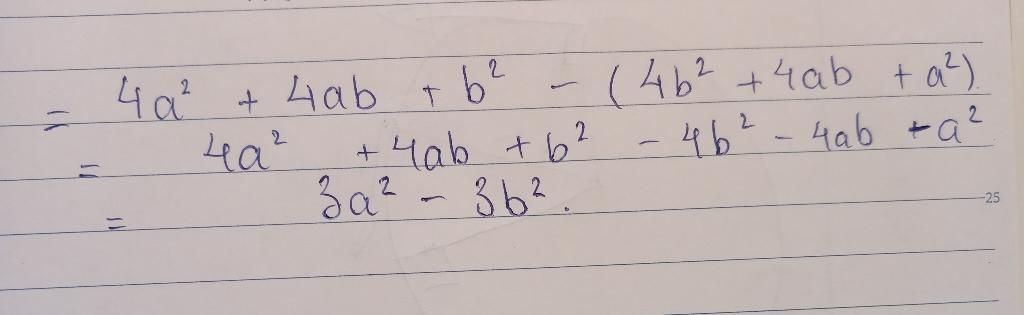 = 4a² + 4ab + b² - (4b² + 4ab + a²)
= 4a² + 4ab + b² - 4b² - 4ab - a²
= 3a² - 3b².
25